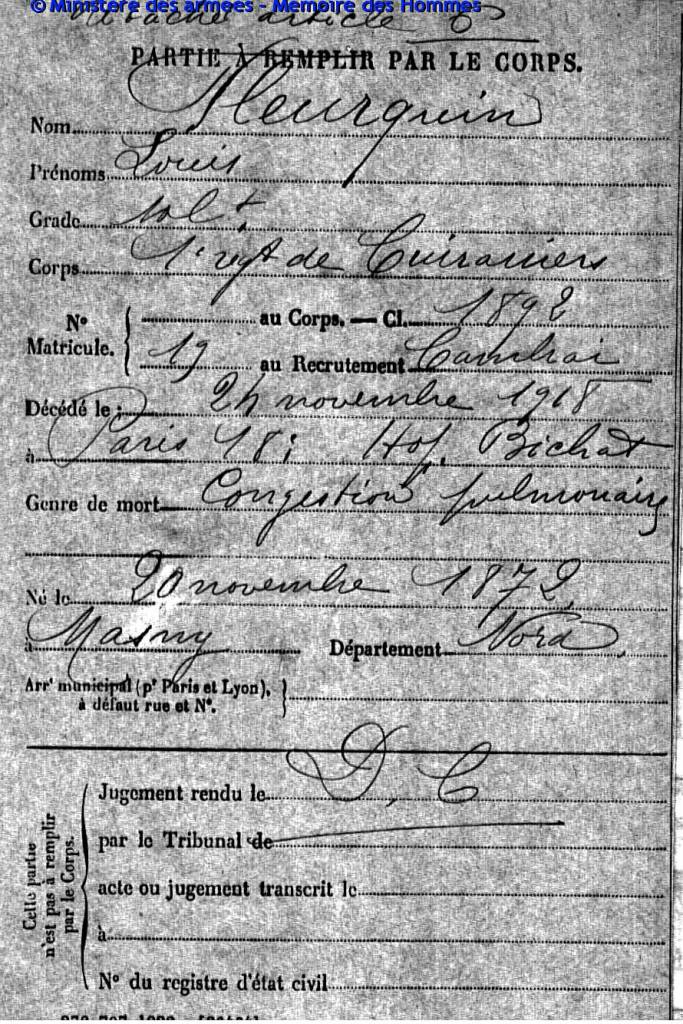 © Ministère des armées - Mémoire des Hommes
détaché article 6
PARTIE À REMPLIR PAR LE CORPS.
Nom Fleurquin
Prénoms Louis
Grade solt
Corps 1er regt de Cuirassiers
N° Matricule. { au Corps. — Cl. 1892
19 au Recrutement Cambrai
Décédé le : 24 novembre 1918
à Paris 18: Hop. Bichat
Genre de mort Congestion pulmonaire
Né le 20 novembre 1872
à Masny Département Nord
Arrt municipal (pr Paris et Lyon),
à défaut rue et N°.
Celle partie
n'est pas à remplir
par le Corps.
Jugement rendu le D. C
par le Tribunal de
acte ou jugement transcrit le
à
N° du registre d'état civil